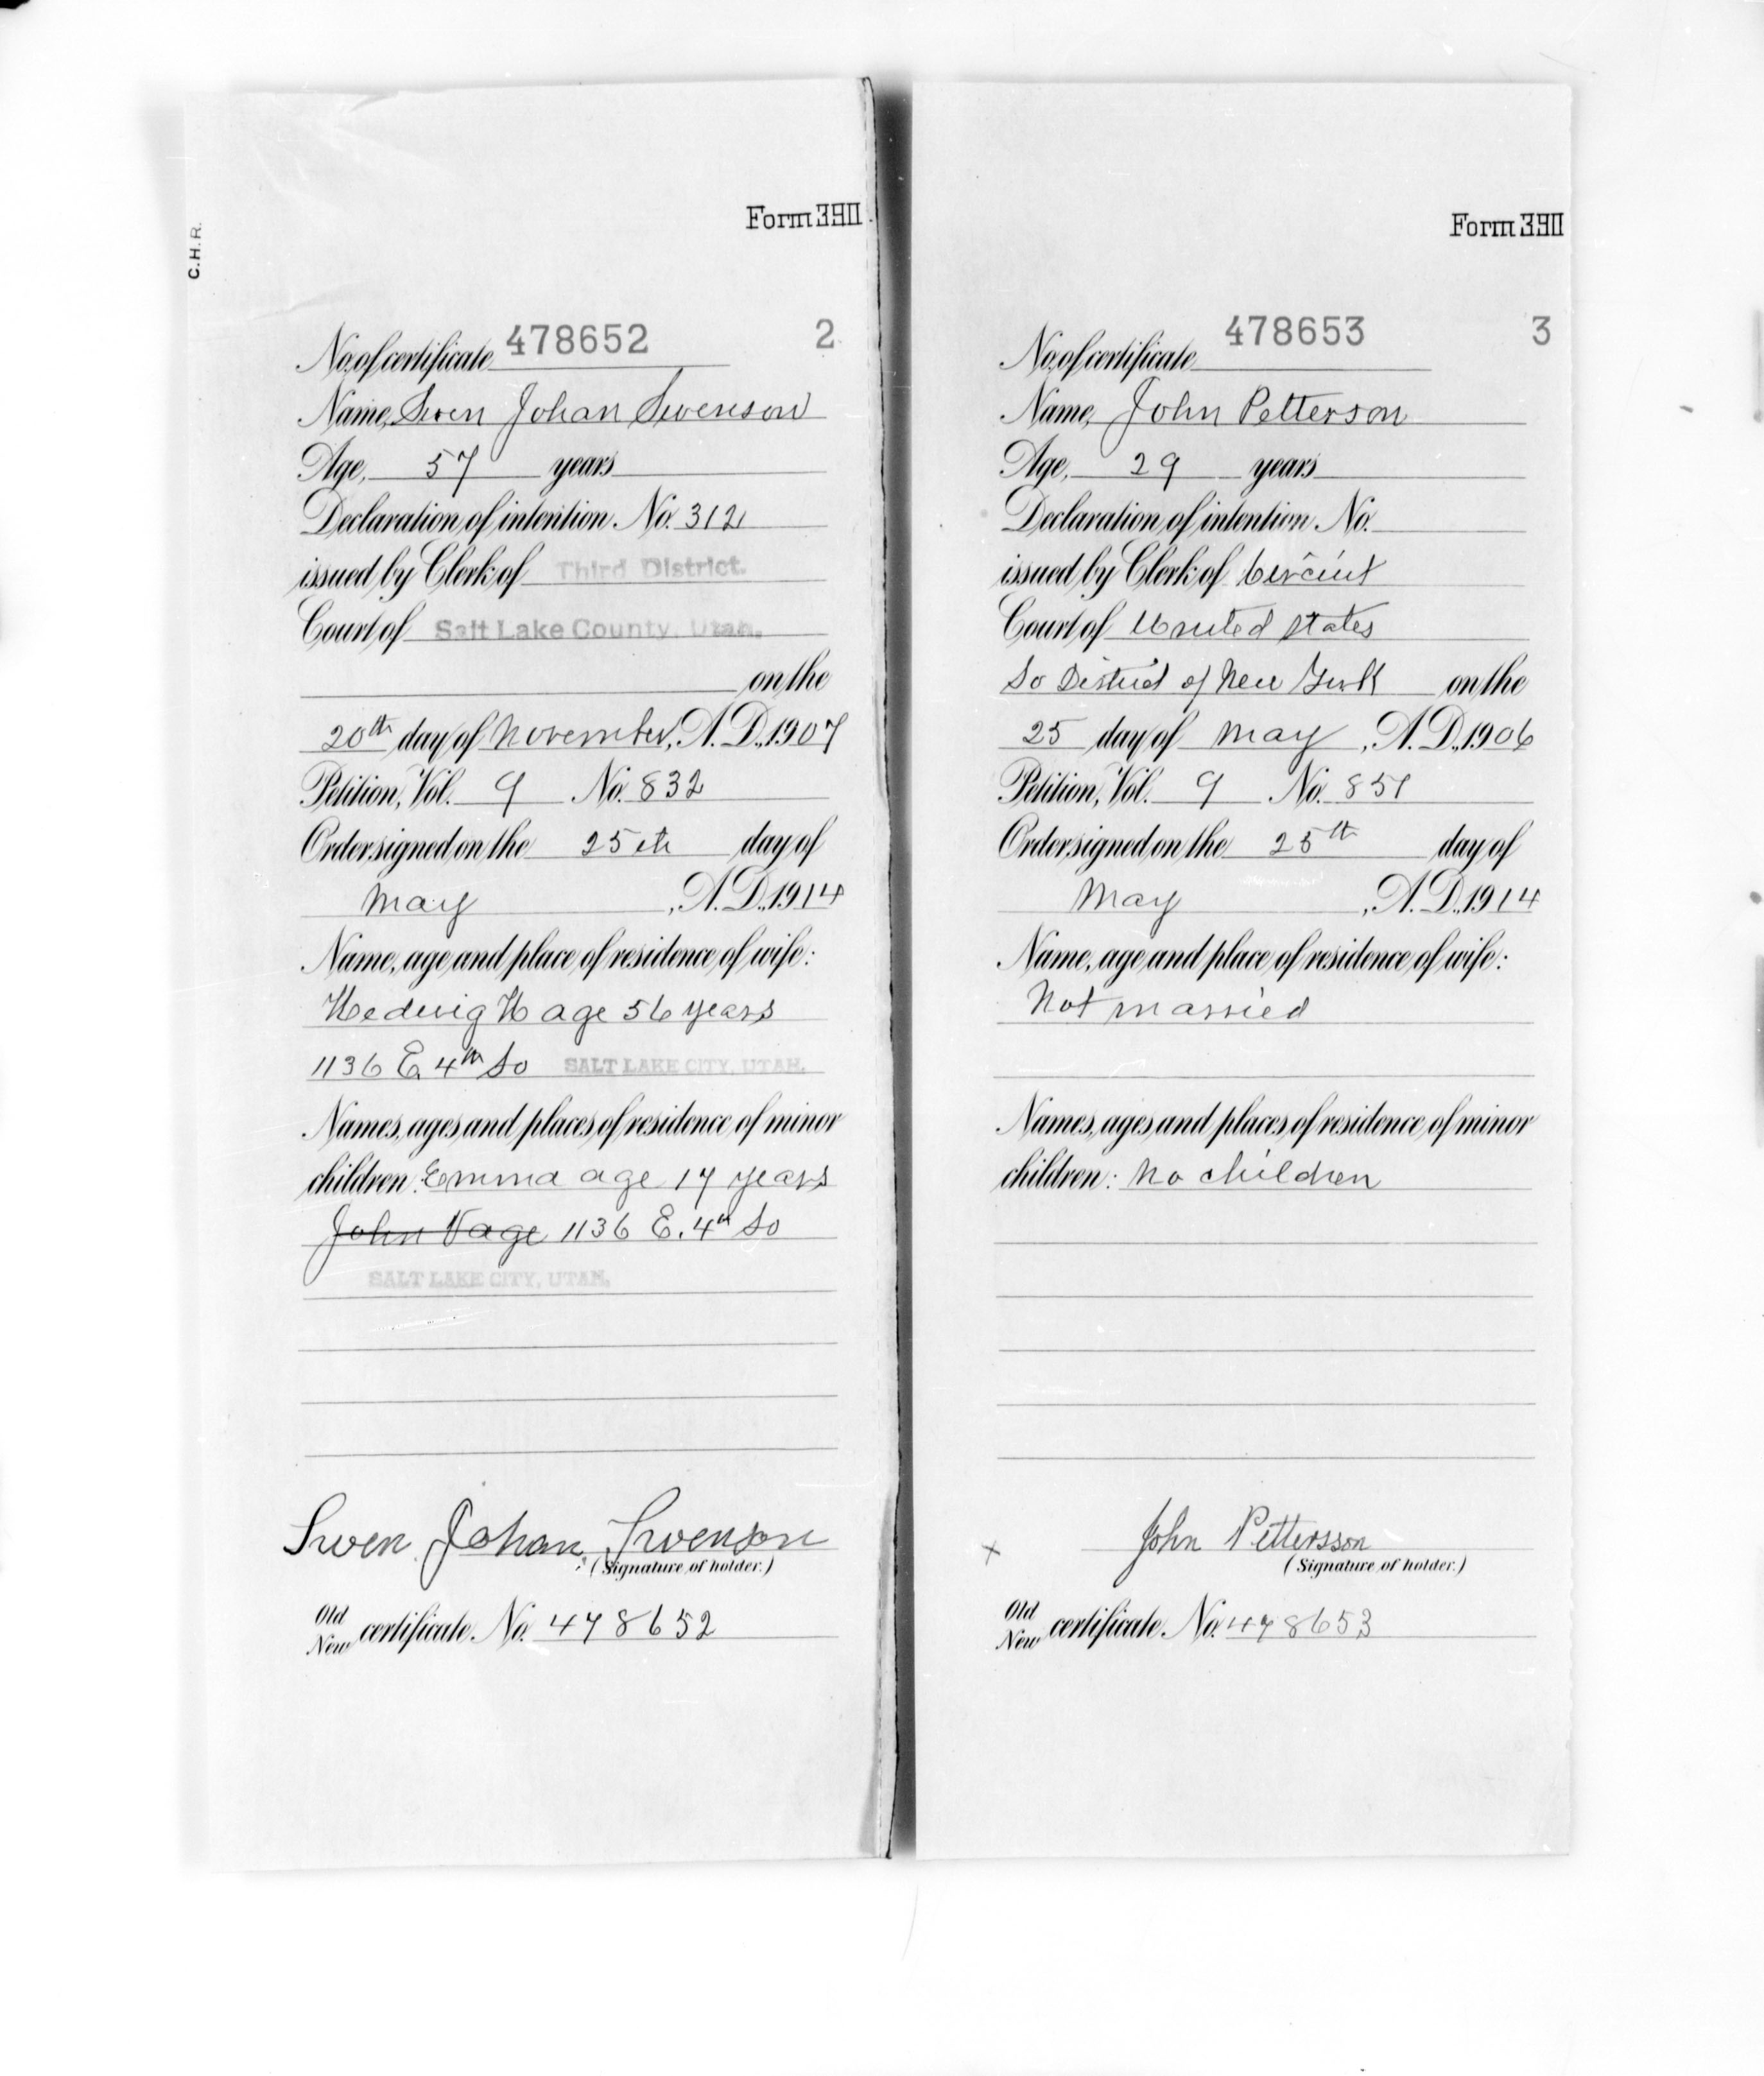 C.H.R.
Form 390
No. of certificate 478652 2
Name, Swen Johan Swenson
Age, 57 years
Declaration of intention. No. 312
issued by Clerk of Third District.
Court of Salt Lake County, Utah.
on the
20th day of November, A.D., 1907
Petition, Vol. 9 No. 832
Order signed on the 25th day of
May, A.D., 1914
Name, age and place of residence of wife:
Hedwig H age 56 years
1136 E. 4th So SALT LAKE CITY, UTAH.
Names, ages and places of residence of minor
children: Emma age 17 years
John V age 1136 E. 4th So
SALT LAKE CITY, UTAH.
Swen Johan Swenson
(Signature of holder.)
Old
New certificate. No. 478652
Form 390
No. of certificate 478653 3
Name, John Petterson
Age, 29 years
Declaration of intention. No.
issued by Clerk of Circuit
Court of United States
So District of New York on the
25 day of May, A.D., 1906
Petition, Vol. 9 No. 851
Order signed on the 25th day of
May, A.D., 1914
Name, age and place of residence of wife:
Not married
Names, ages and places of residence of minor
children: No children
x John Pettersson
(Signature of holder.)
Old
New certificate. No. 478653